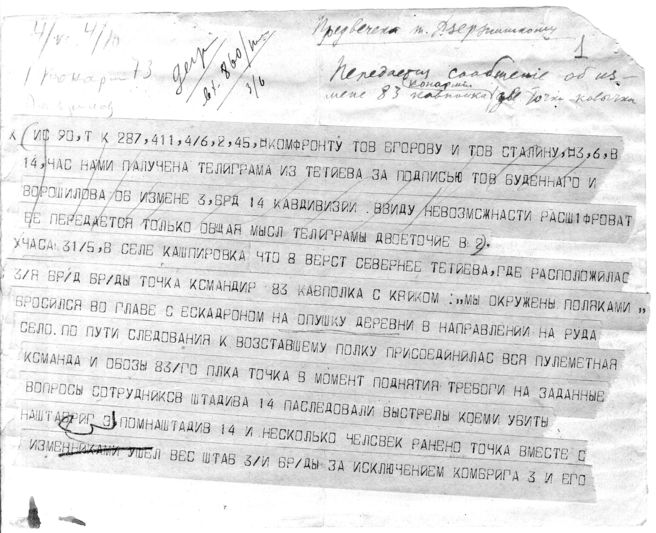 4/VI. 4/VI
дегр
вх. 860/
3/6
Предвечека т. Дзержинскому
1
Передается сообщение об из-
мене 83 конарм. кавполка
73
ИФ 90,Т К 287,411,4/6,2,45,¤КОМФРОНТУ ТОВ ЕГОРОВУ И ТОВ СТАЛИНУ,¤3,6,В
14,ЧАС НАМИ ПАЛУЧЕНА ТЕЛИГРАМА ИЗ ТЕТИЕВА ЗА ПОДПИСЬЮ ТОВ БУДЕННАГО И
ВОРОШИЛОВА ОБ ИЗМЕНЕ 3,БРД 14 КАВДИВИЗИИ .ВВИДУ НЕВОЗМСЖНАСТИ РАСШ1ФРОВАТ
ЕЕ ПЕРЕДАЕТСЯ ТОЛЬКО ОБЩАЯ МЫСЛ ТЕЛИГРАМЫ ДВОЕТОЧИЕ В 2).
ХЧАСА 31/5,В СЕЛЕ КАШПИРОВКА ЧТО 8 ВЕРСТ СЕВЕРНЕЕ ТЕТИЕВА,ГДЕ РАСПОЛОЖИЛАС
3/Я БР/Д БР/ДЫ ТОЧКА КСМАНДИР 83 КАВПОЛКА С КРИКОМ :„МЫ ОКРУЖЕНЫ ПОЛЯКАМИ„
БРОСИЛСЯ ВО ГЛАВЕ С ЕСКАДРОНОМ НА ОПУШКУ ДЕРЕВНИ В НАПРАВЛЕНИИ НА РУДА
СЕЛО.ПО ПУТИ СЛЕДОВАНИЯ К ВОЗСТАВШЕМУ ПОЛКУ ПРИСОЕДИНИЛАС ВСЯ ПУЛЕМЕТНАЯ
КСМАНДА И ОБОЗЫ 83/ГО ПЛКА ТОЧКА В МОМЕНТ ПОДНЯТИЯ ТРЕБОГИ НА ЗАДАННЫЕ
ВОПРОСЫ СОТРУДНИКСВ ШТАДИВА 14 ПАСЛЕДОВАЛИ ВЫСТРЕЛЫ КОЕМИ УБИТЫ
НАШТАБРИГ 3,ПОМНАШТАДИВ 14 И НЕСКОЛЬКО ЧЕЛСВЕК РАНЕНО ТОЧКА ВМЕСТЕ С
ИЗМЕННИКАМИ УШЕЛ ВЕС ШТАБ 3/И БР/ДЫ ЗА ИСКЛЮЧЕНИЕМ КОМБРИГА 3 И ЕГО